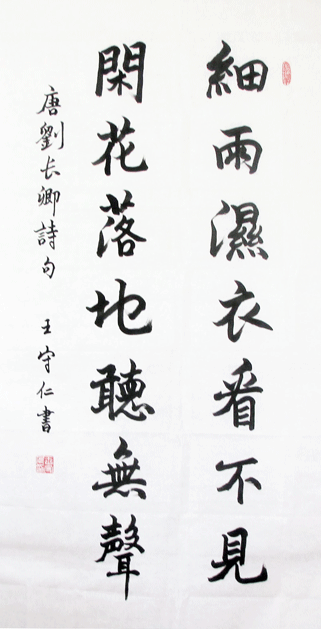 細雨濕衣看不見
閑花落地聽無聲
唐劉长卿詩句 王守仁書